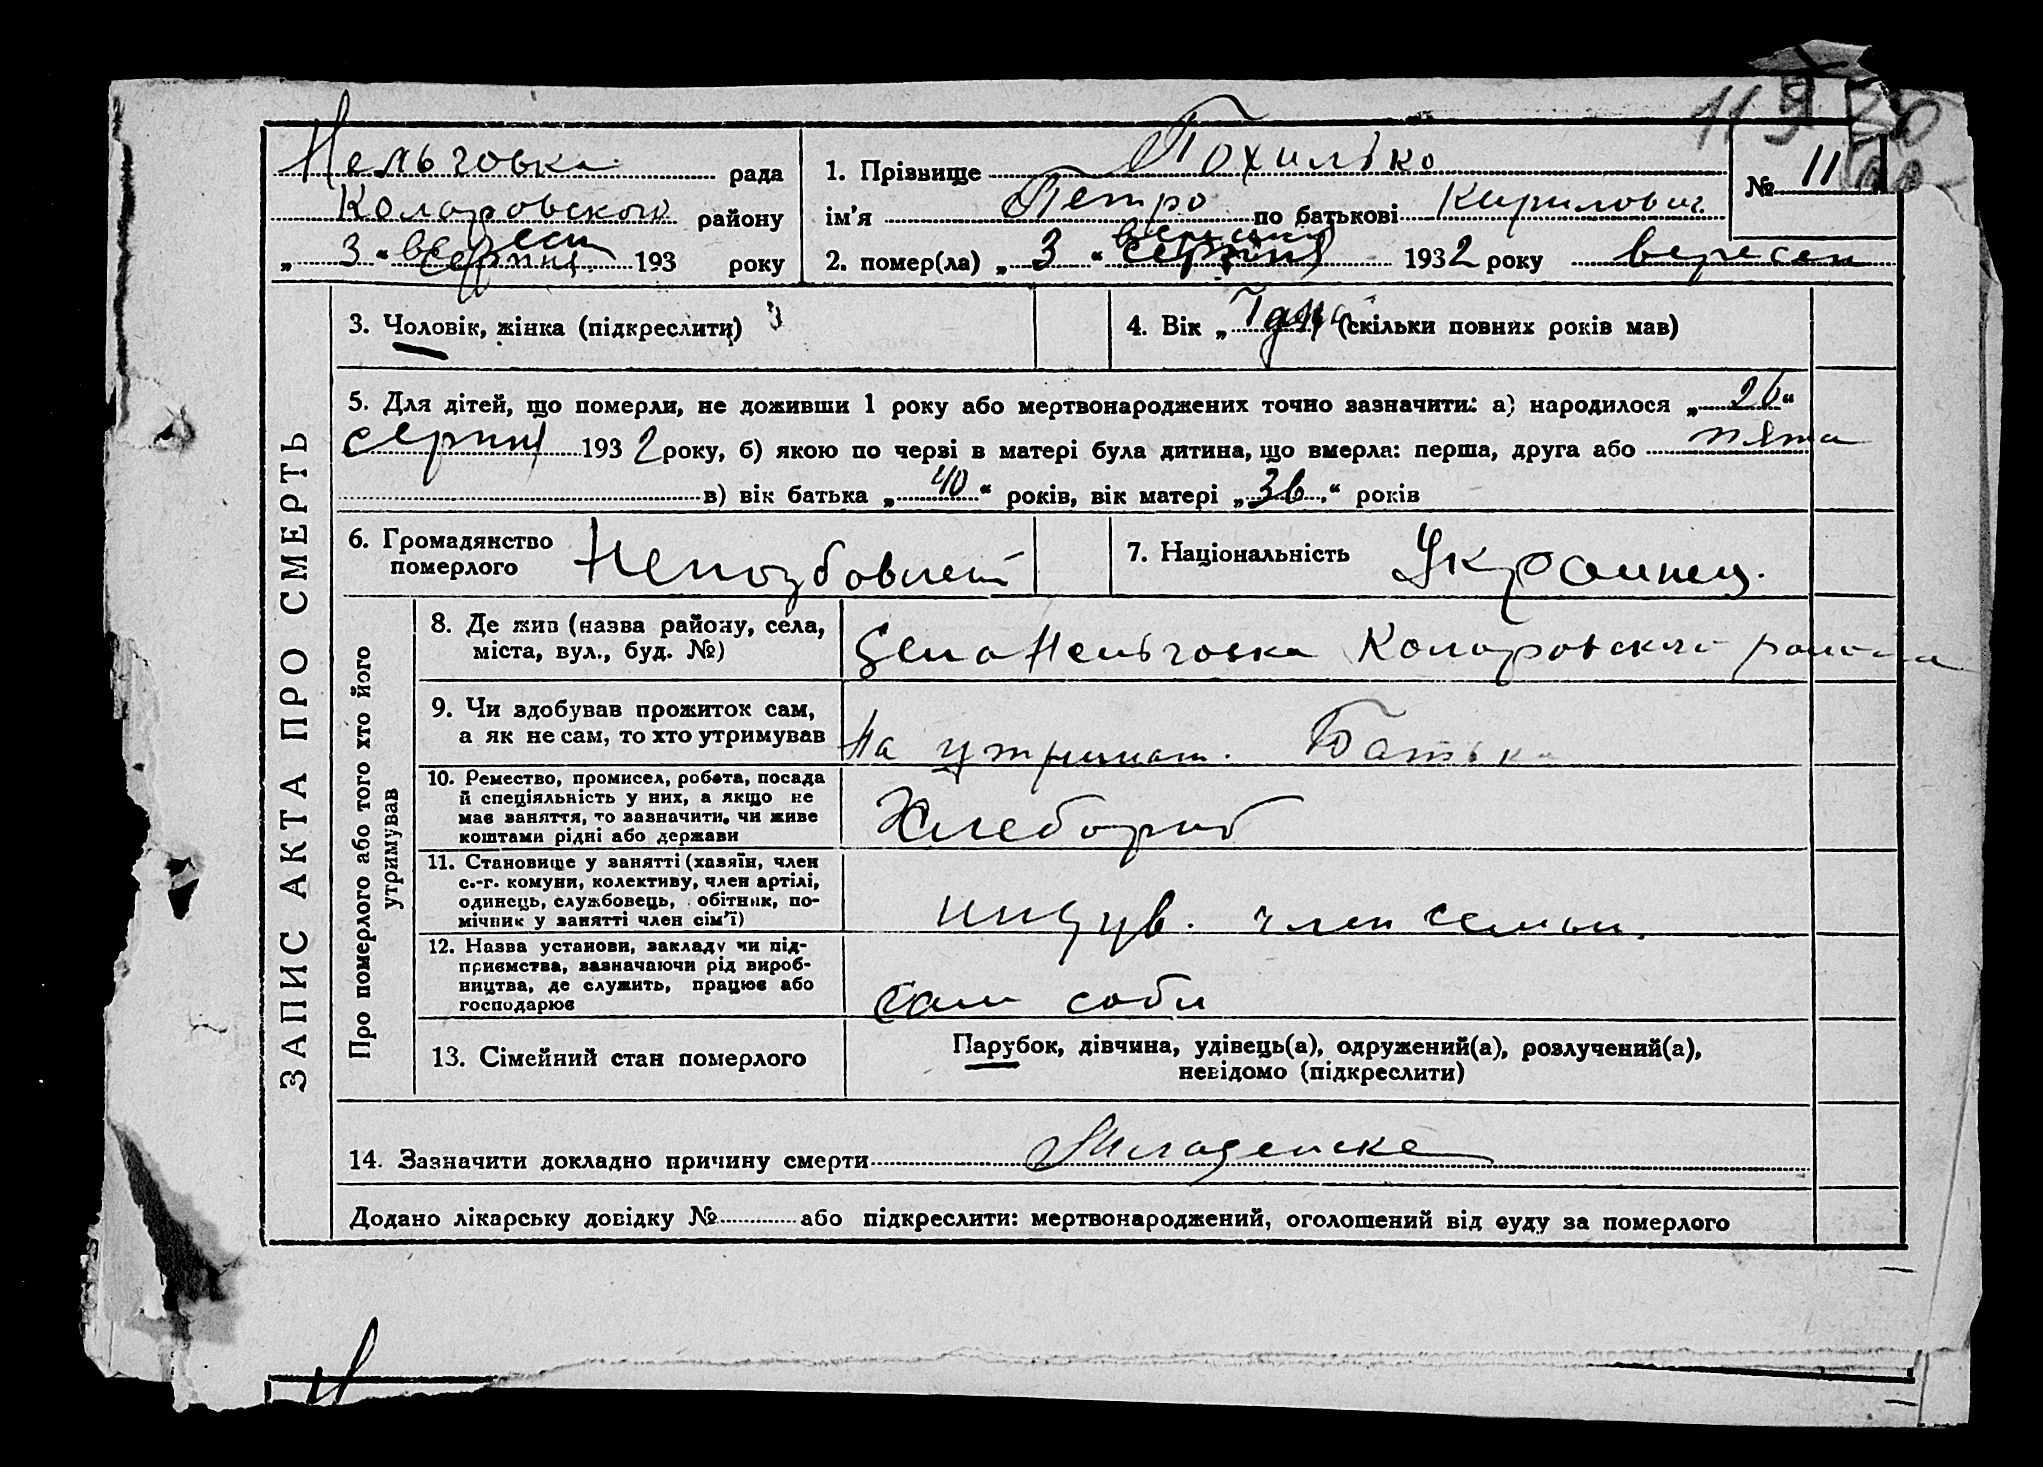 Нельговка рада
Коларовского району
„ 3 “ вересн серпня 193 року
1. Прізвище Похилько
ім’я Петро по батькові Кирилович
2. помер(ла) „ 3 “ серпня 1932 року вересен
№ 11
ЗАПИС АКТА ПРО СМЕРТЬ
3. Чоловік, жінка (підкреслити)
4. Вік „ 7 дня “ (скільки повних років мав)
5. Для дітей, що померли, не доживши 1 року або мертвонароджених точно зазначити: а) народилося „ 26 “
серпня 1932 року, б) якою по черзі в матері була дитина, що вмерла: перша, друга або пята
в) вік батька „ 40 “ років, вік матері „ 36 “ років
6. Громадянство
померлого
Непозбовлен
7. Національність Украинец.
Про померлого або того хто його
утримував
8. Де жив (назва району, села,
міста, вул., буд. №)
Село Нельговка Коларовского района
9. Чи здобував прожиток сам,
а як не сам, то хто утримував
На утриман. Батька
10. Ремество, промисел, робота, посада
й спеціяльність у них, а якщо не
має заняття, то зазначити, чи живе
коштами рідні або держави
Хлебороб
11. Становище у занятті (хазяїн, член
с.-г. комуни, колективу, член артілі,
одинець, службовець, обітник, по-
мічник у занятті член сім’ї)
индув. член семьи.
12. Назва установи, закладу чи під-
приємства, зазначаючи рід вироб-
ництва, де служить, працює або
господарює
Сам соби
13. Сімейний стан померлого
Парубок, дівчина, удівець(а), одружений(а), розлучений(а),
невідомо (підкреслити)
14. Зазначити докладно причину смерти Младенске
Додано лікарську довідку № або підкреслити: мертвонароджений, оголошений від суду за померлого